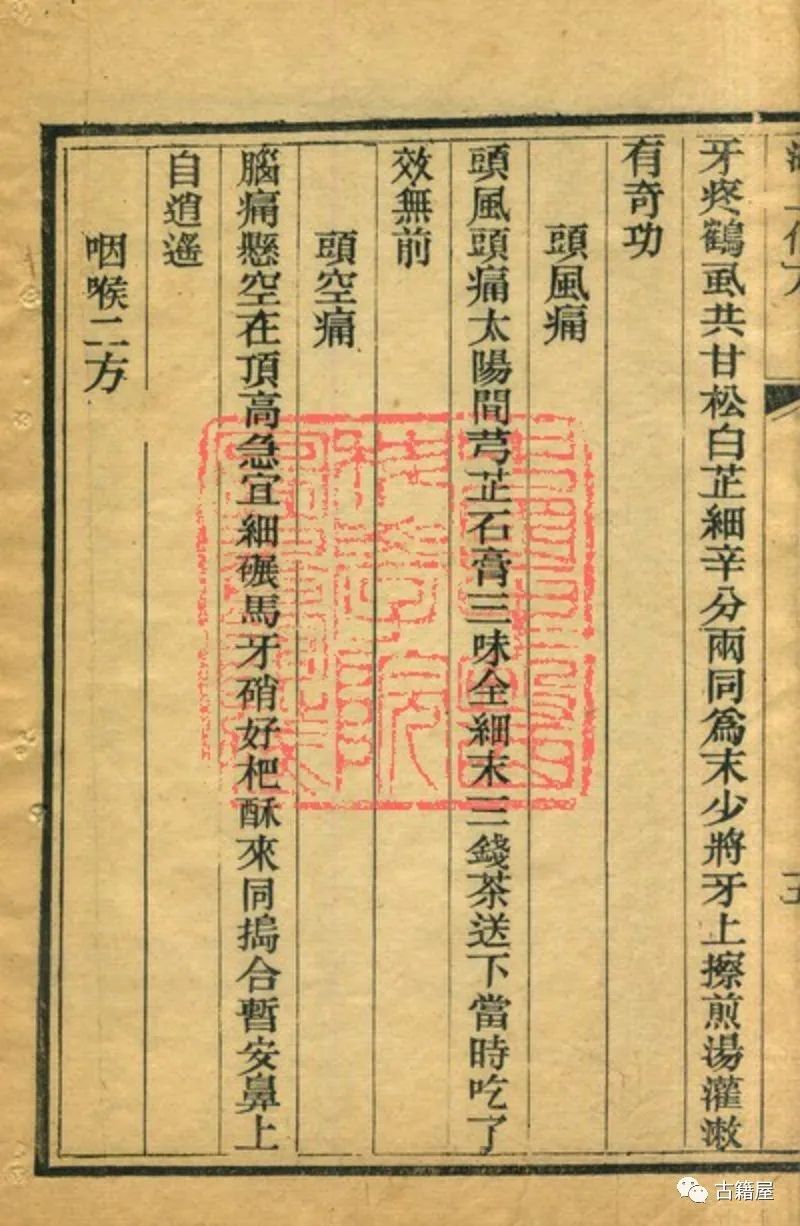 牙疼鶴虱共甘松白芷細辛分兩同爲末少將牙上擦煎湯灌漱
有奇功
頭風痛
頭風頭痛太陽間芎芷石膏三味全細末三錢茶送下當時吃了
效無前
頭空痛
腦痛懸空在頂高急宜細碾馬牙硝好杷酥來同搗合暫安鼻上
自逍遙
咽喉二方
古籍屋